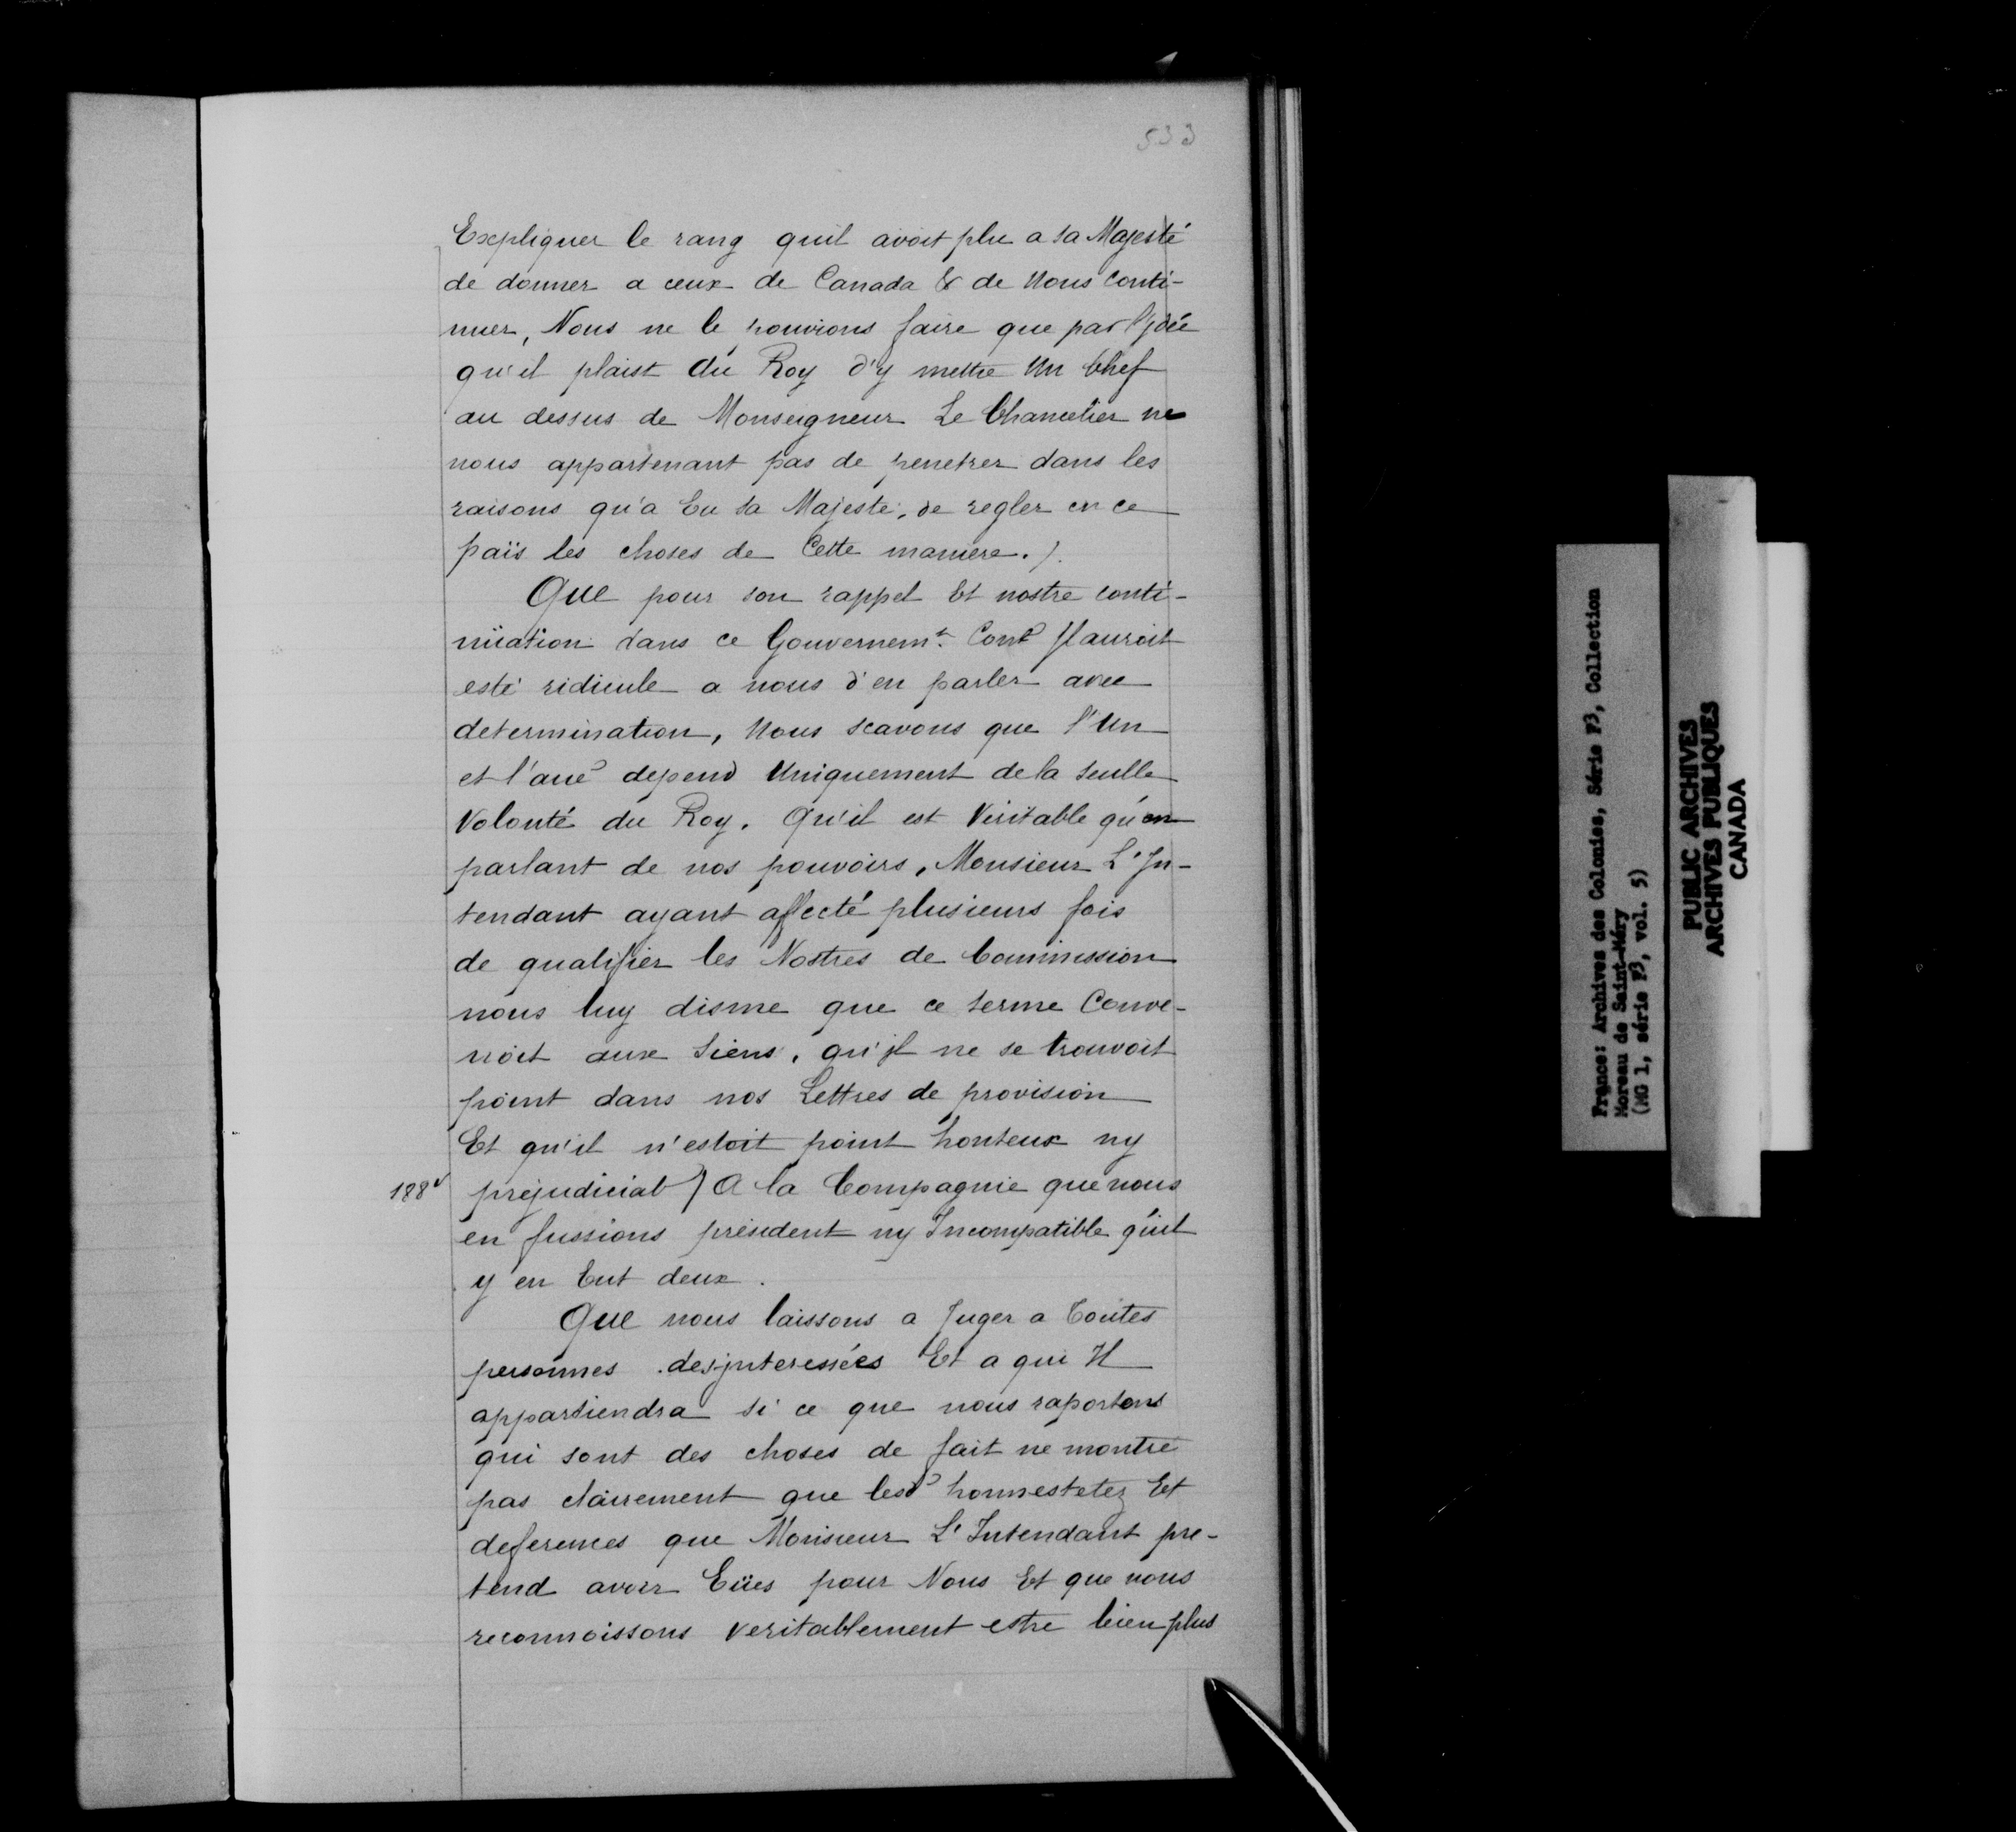 533
Expliquer le rang quil avoit plu a sa Majesté
de donner a ceux de Canada & de Nous conti-
nuer, Nous ne le pouvions faire que par l'jdée
qu'il plaist du Roy d'y mettre Un Chef
au dessus de Monseigneur Le Chancelier ne
nous appartenant pas de penetrer dans les
raisons qu'a Eu sa Majesté, de regler en ce
païs les choses de Cette maniere. /.
Que pour son rappel Et nostre conti-
nüation dans ce Gouvernemt. Jl auroit
esté ridicule a nous d'en parler avec
determination, Nous scavons que l'Un
et l'aue depend Uniquement de la seulle
Volonté du Roy. Qu'il est Véritable qu'en
parlant de nos pouvoirs, Monsieur L'In-
tendant ayant affecté plusieurs fois
de qualifier les Nostres de Commission
nous luy disme que ce terme Conve-
noit aux Siens, qu'jl ne se trouvoit
point dans nos Lettres de provision
Et qu'il n'estoit point honteux ny
188v préjudicial / A la Compagnie que nous
en fussions président ny Incompatible q'uil
y en Eut deux.
Que nous laissons a Juger a Toutes
personnes desjnteressées Et a qui Il
appartiendra si ce que nous raportons
qui sont des choses de fait ne montre
pas clairement que lesd honnestetez Et
deferences que Monsieur L'Intendant pre-
tend avoir Eües pour Nous Et que nous
reconnoissons veritablement estre bien plus
France: Archives des Colonies, Série F3, Collection
Moreau de Saint-Méry
(MG 1, série F3, vol. 5)
PUBLIC ARCHIVES
ARCHIVES PUBLIQUES
CANADA